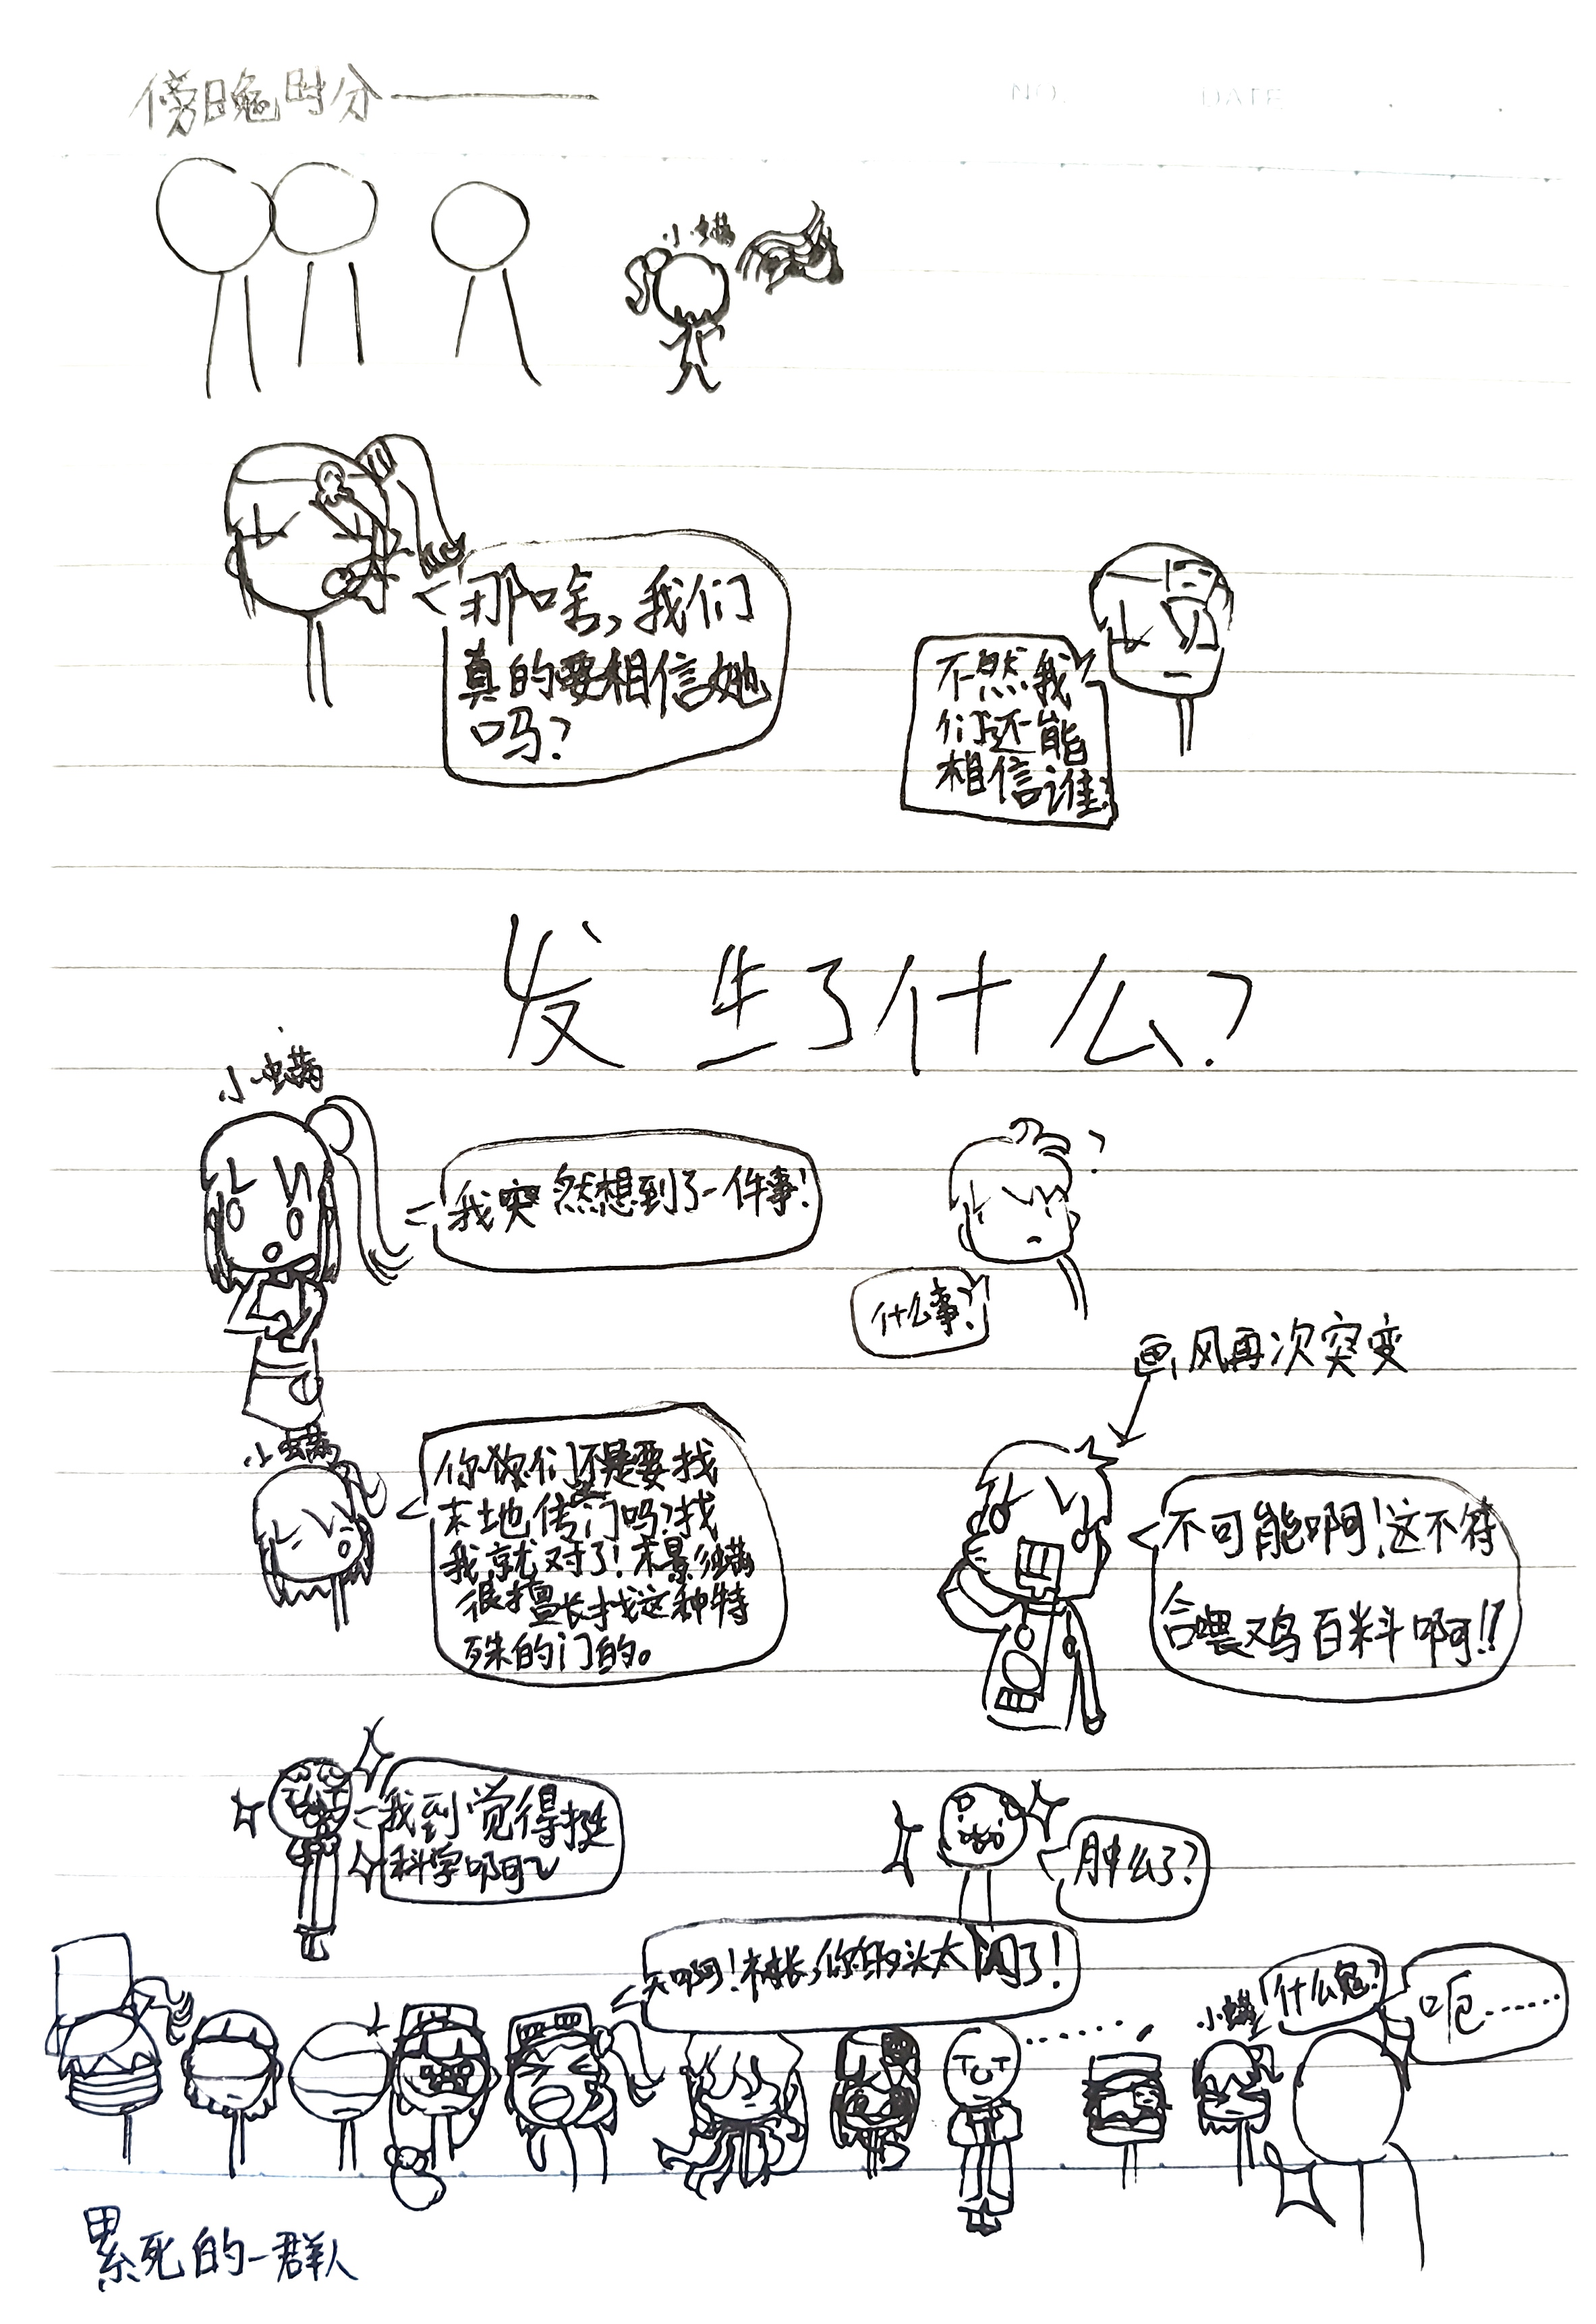 傍晚时分———
NO.
DATE
小螨
那啥，我们
真的要相信她
吗？
不然我
们还能
相信谁？
发生了什么？
小螨
我突然想到了一件事！
？
什么事？
画风再次突变
小螨
你们不是要找
末地传门吗？找
我就对了！末影螨
很擅长找这种特
殊的门的。
不可能啊！这不符
合喂鸡百科啊！！
我到觉得挺
科学啊～
肿么了？
天啊！村长，你的头太闪了！
......
小螨
什么鬼？
呃......
累死的一群人